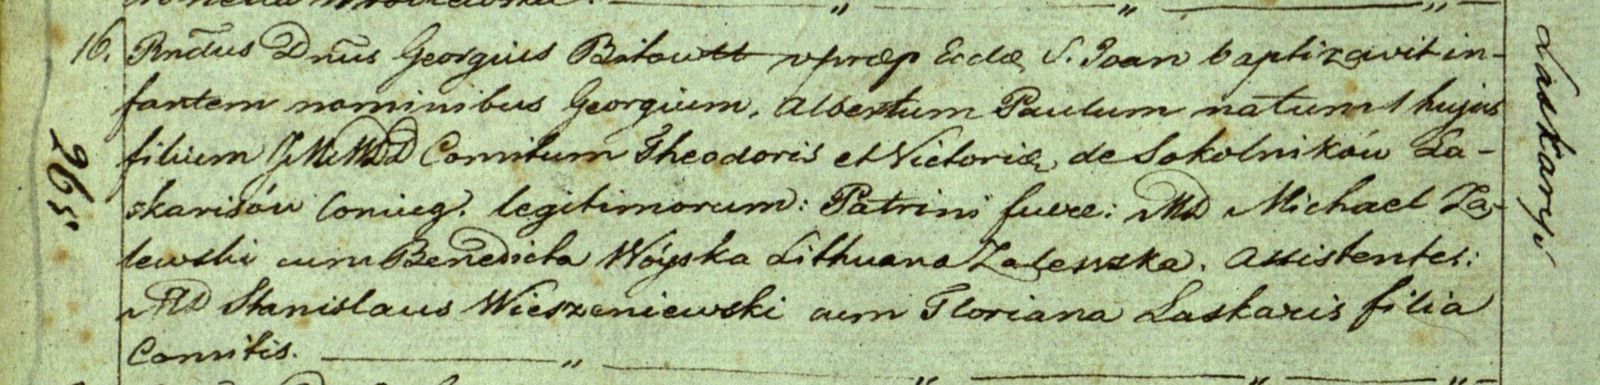 16. Rndus Dnus Georgius Bitowtt vpræp Ecclæ S. Joan baptizavit in-
fantem nominibus Georgium, Albertum Paulum natum 1 hujus
filium Comitum Theodoris et Victoriæ de Sokolników La-
skarisów Coniug. legitimorum: Patrini fuere: MD Michael Za-
lewski cum Benedicta Woyska Lithuana Zalewska. Assistentes:
MD Stanislaus Wieszeniewski cum Floriana Laskaris filia
Comitis.
265
Laskarys